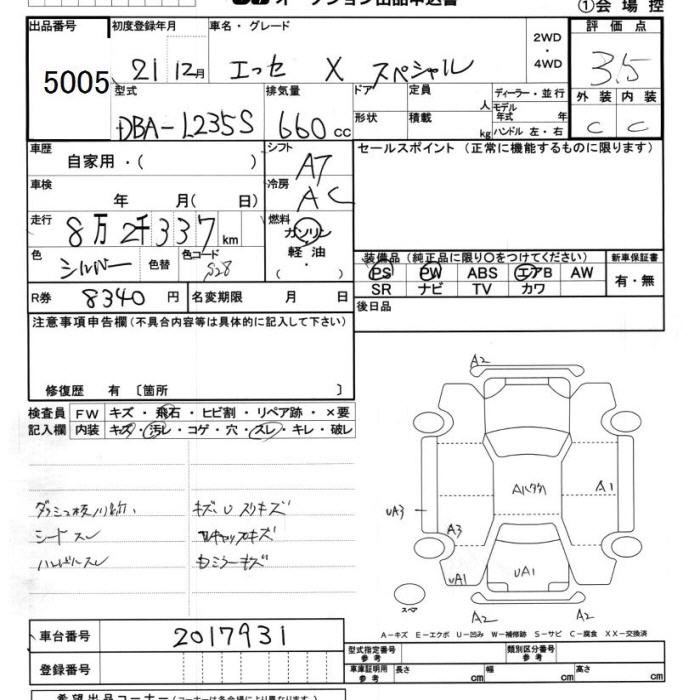 オークション出品申込書
①会場控
出品番号 初度登録年月 車名・グレード 2WD・4WD 評価点
5005 21 12月 エッセ X スペシャル 3.5
型式 排気量 ドア 定員 人 ディーラー・並行 外装 内装
DBA-L235S 660cc 形状 積載 kg モデル年式 年 ハンドル 左・右 C C
車歴 自家用・( ) シフト AT セールスポイント (正常に機能するものに限ります)
車検 年 月( 日) 冷房 AC
走行 8万2千337km 燃料 ガソリン
色 シルバー 色替 色コード S28 軽油 ( ・ )
装備品 (純正品に限り〇をつけてください) 新車保証書
PS PW ABS エアB AW 有・無
SR ナビ TV カワ
R券 8340円 名変期限 月 日 後日品
注意事項申告欄 (不具合内容等は具体的に記入して下さい)
修復歴 有 〔箇所 〕
検査員 FW キズ・飛石・ヒビ割・リペア跡・×要
記入欄 内装 キズ・汚レ・コゲ・穴・スレ・キレ・破レ
シートスレ
ハンドルスレ
モミラーキズ
A2
A1
UA3
A3
UA1 UA1
スペア
A2 A2
A-キズ E-エクボ U-凹み W-補修跡 S-サビ C-腐食 XX-交換済
車台番号 2017931
登録番号
型式指定番号 参考 類別区分番号 参考
車庫証明用 参考 長さ cm 幅 cm 高さ cm
希望出品コーナー